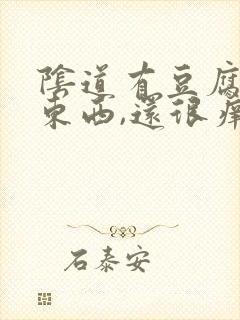 陰道有豆腐
東西,還很癢
石泰安